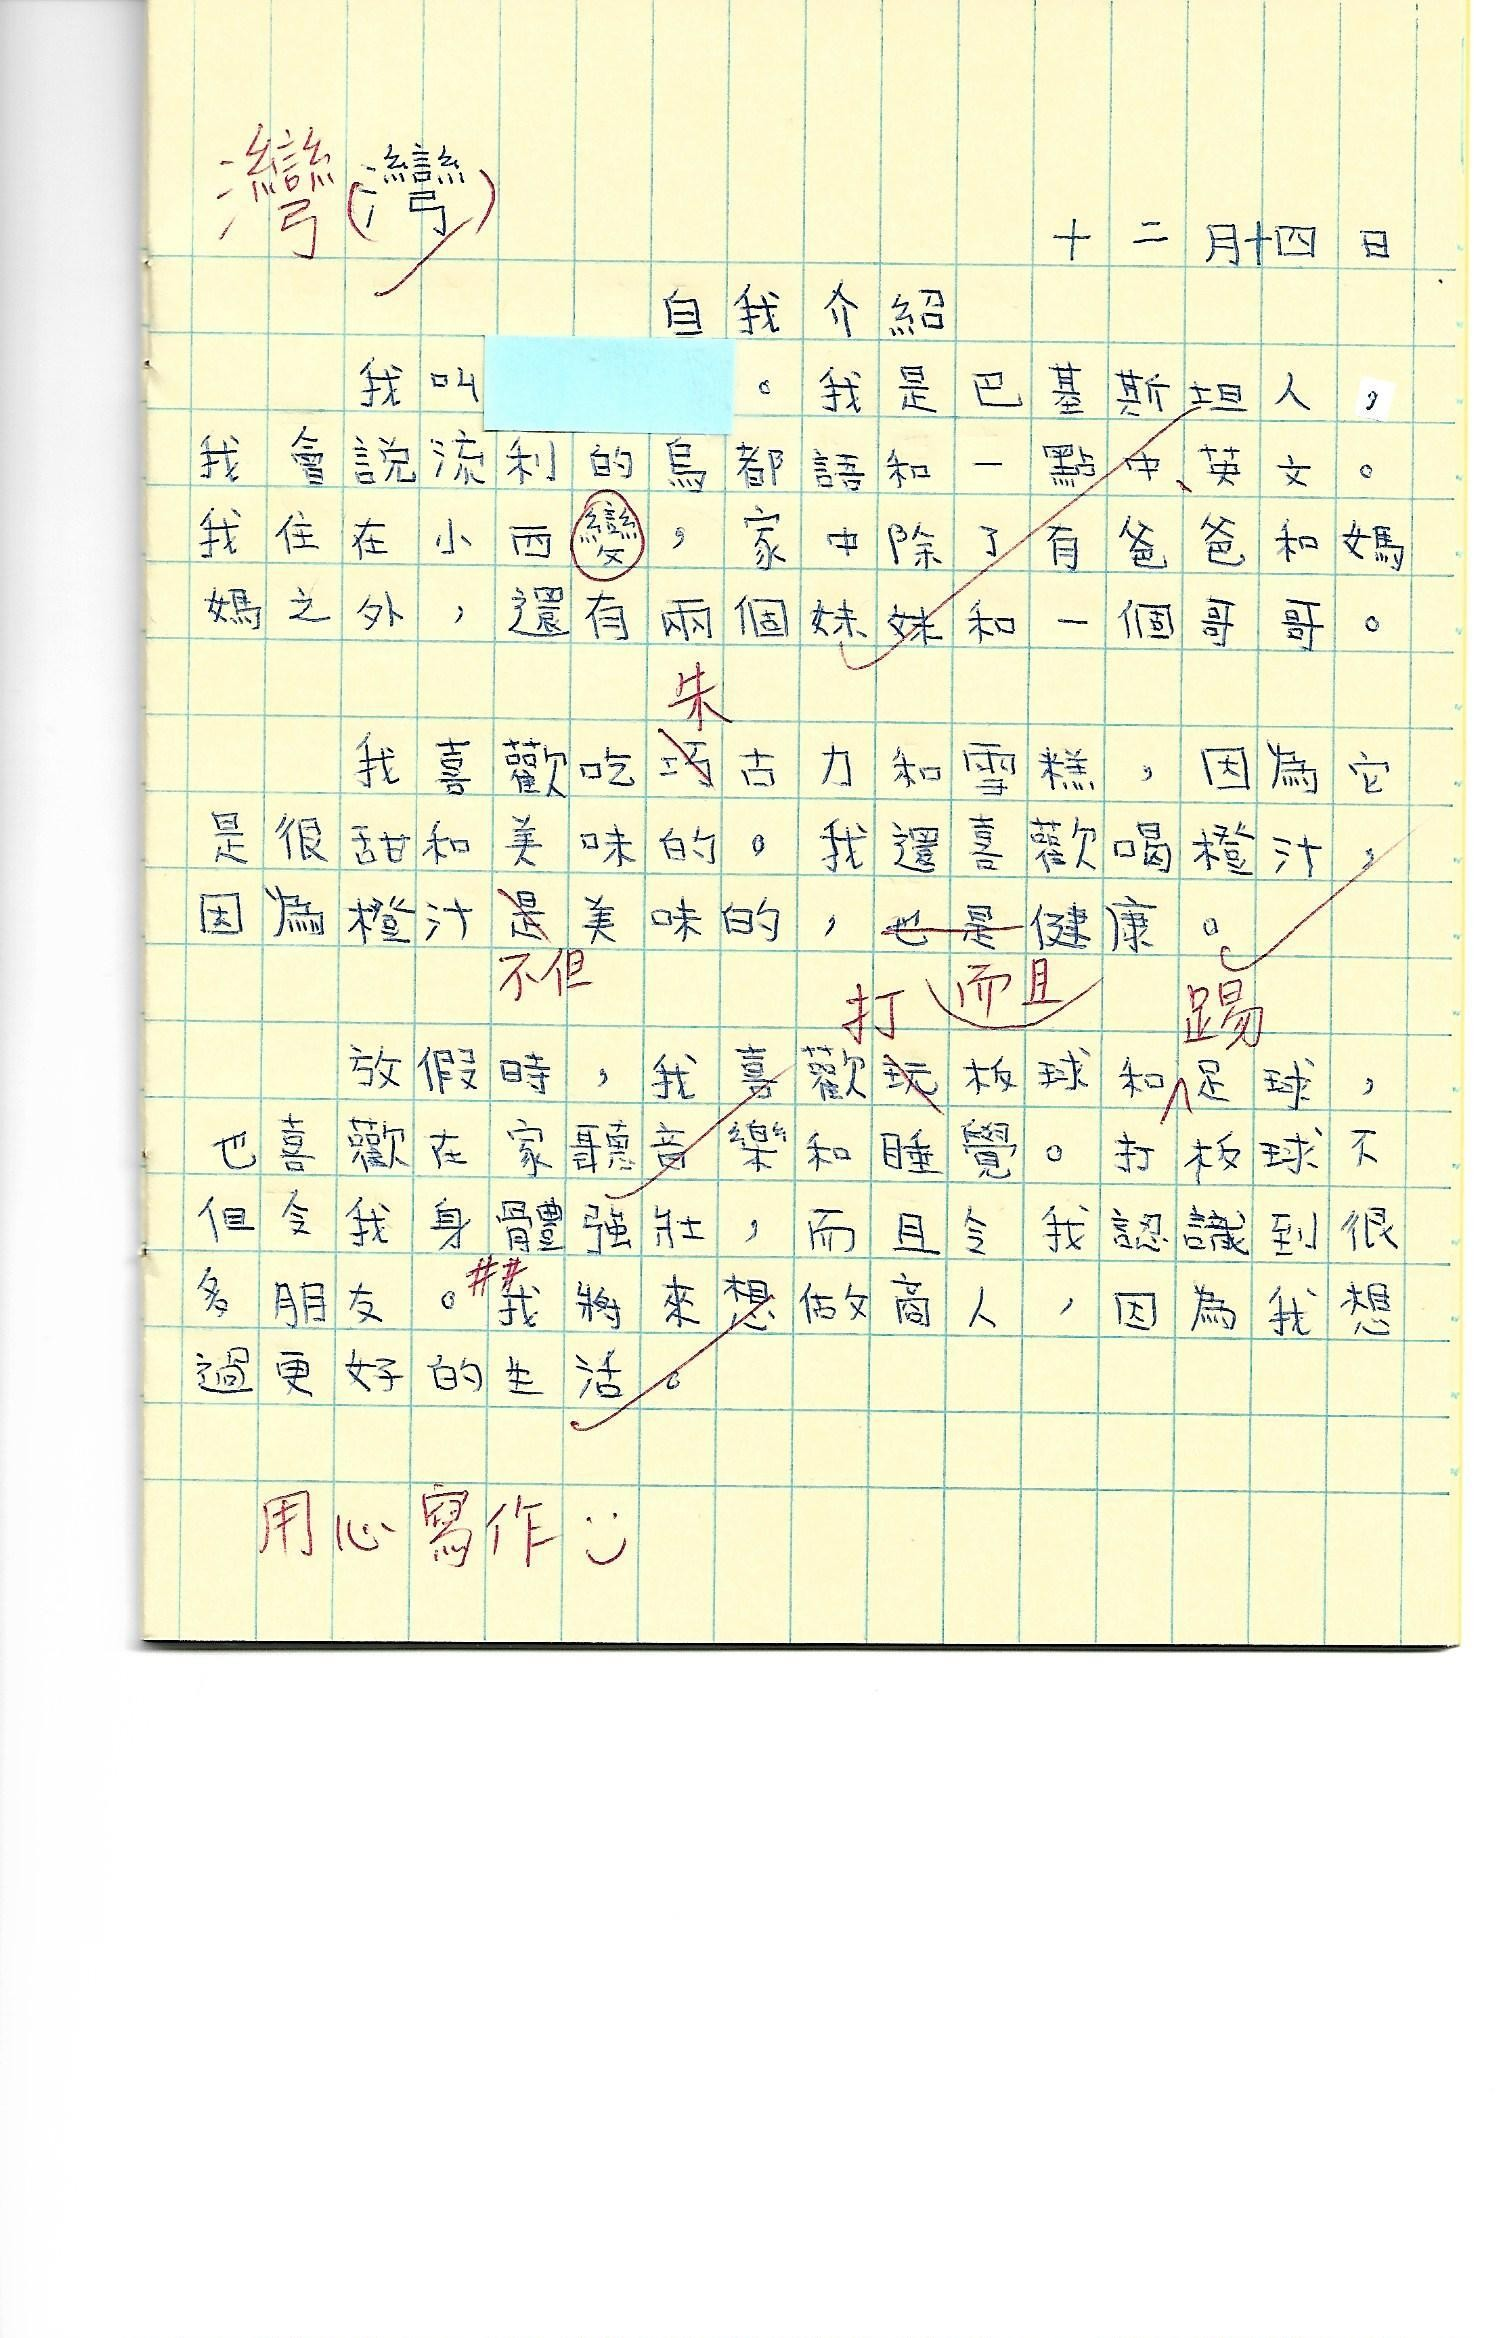 灣(灣)
十二月十四日
自我介紹
我叫 。我是巴基斯坦人，
我會説流利的烏都語和一點中、英文。
我住在小西變，家中除了有爸爸和媽
媽之外，還有兩個妹妹和一個哥哥。
朱
我喜歡吃巧古力和雪糕，因為它
是很甜和美味的。我還喜歡喝橙汁，
因為橙汁是美味的，也是健康。
不但 而且
打 踢
放假時，我喜歡玩板球和足球，
也喜歡在家聽音樂和睡覺。打板球不
但令我身體強壯，而且令我認識到很
多朋友。##我將來想做商人，因為我想
過更好的生活。
用心寫作